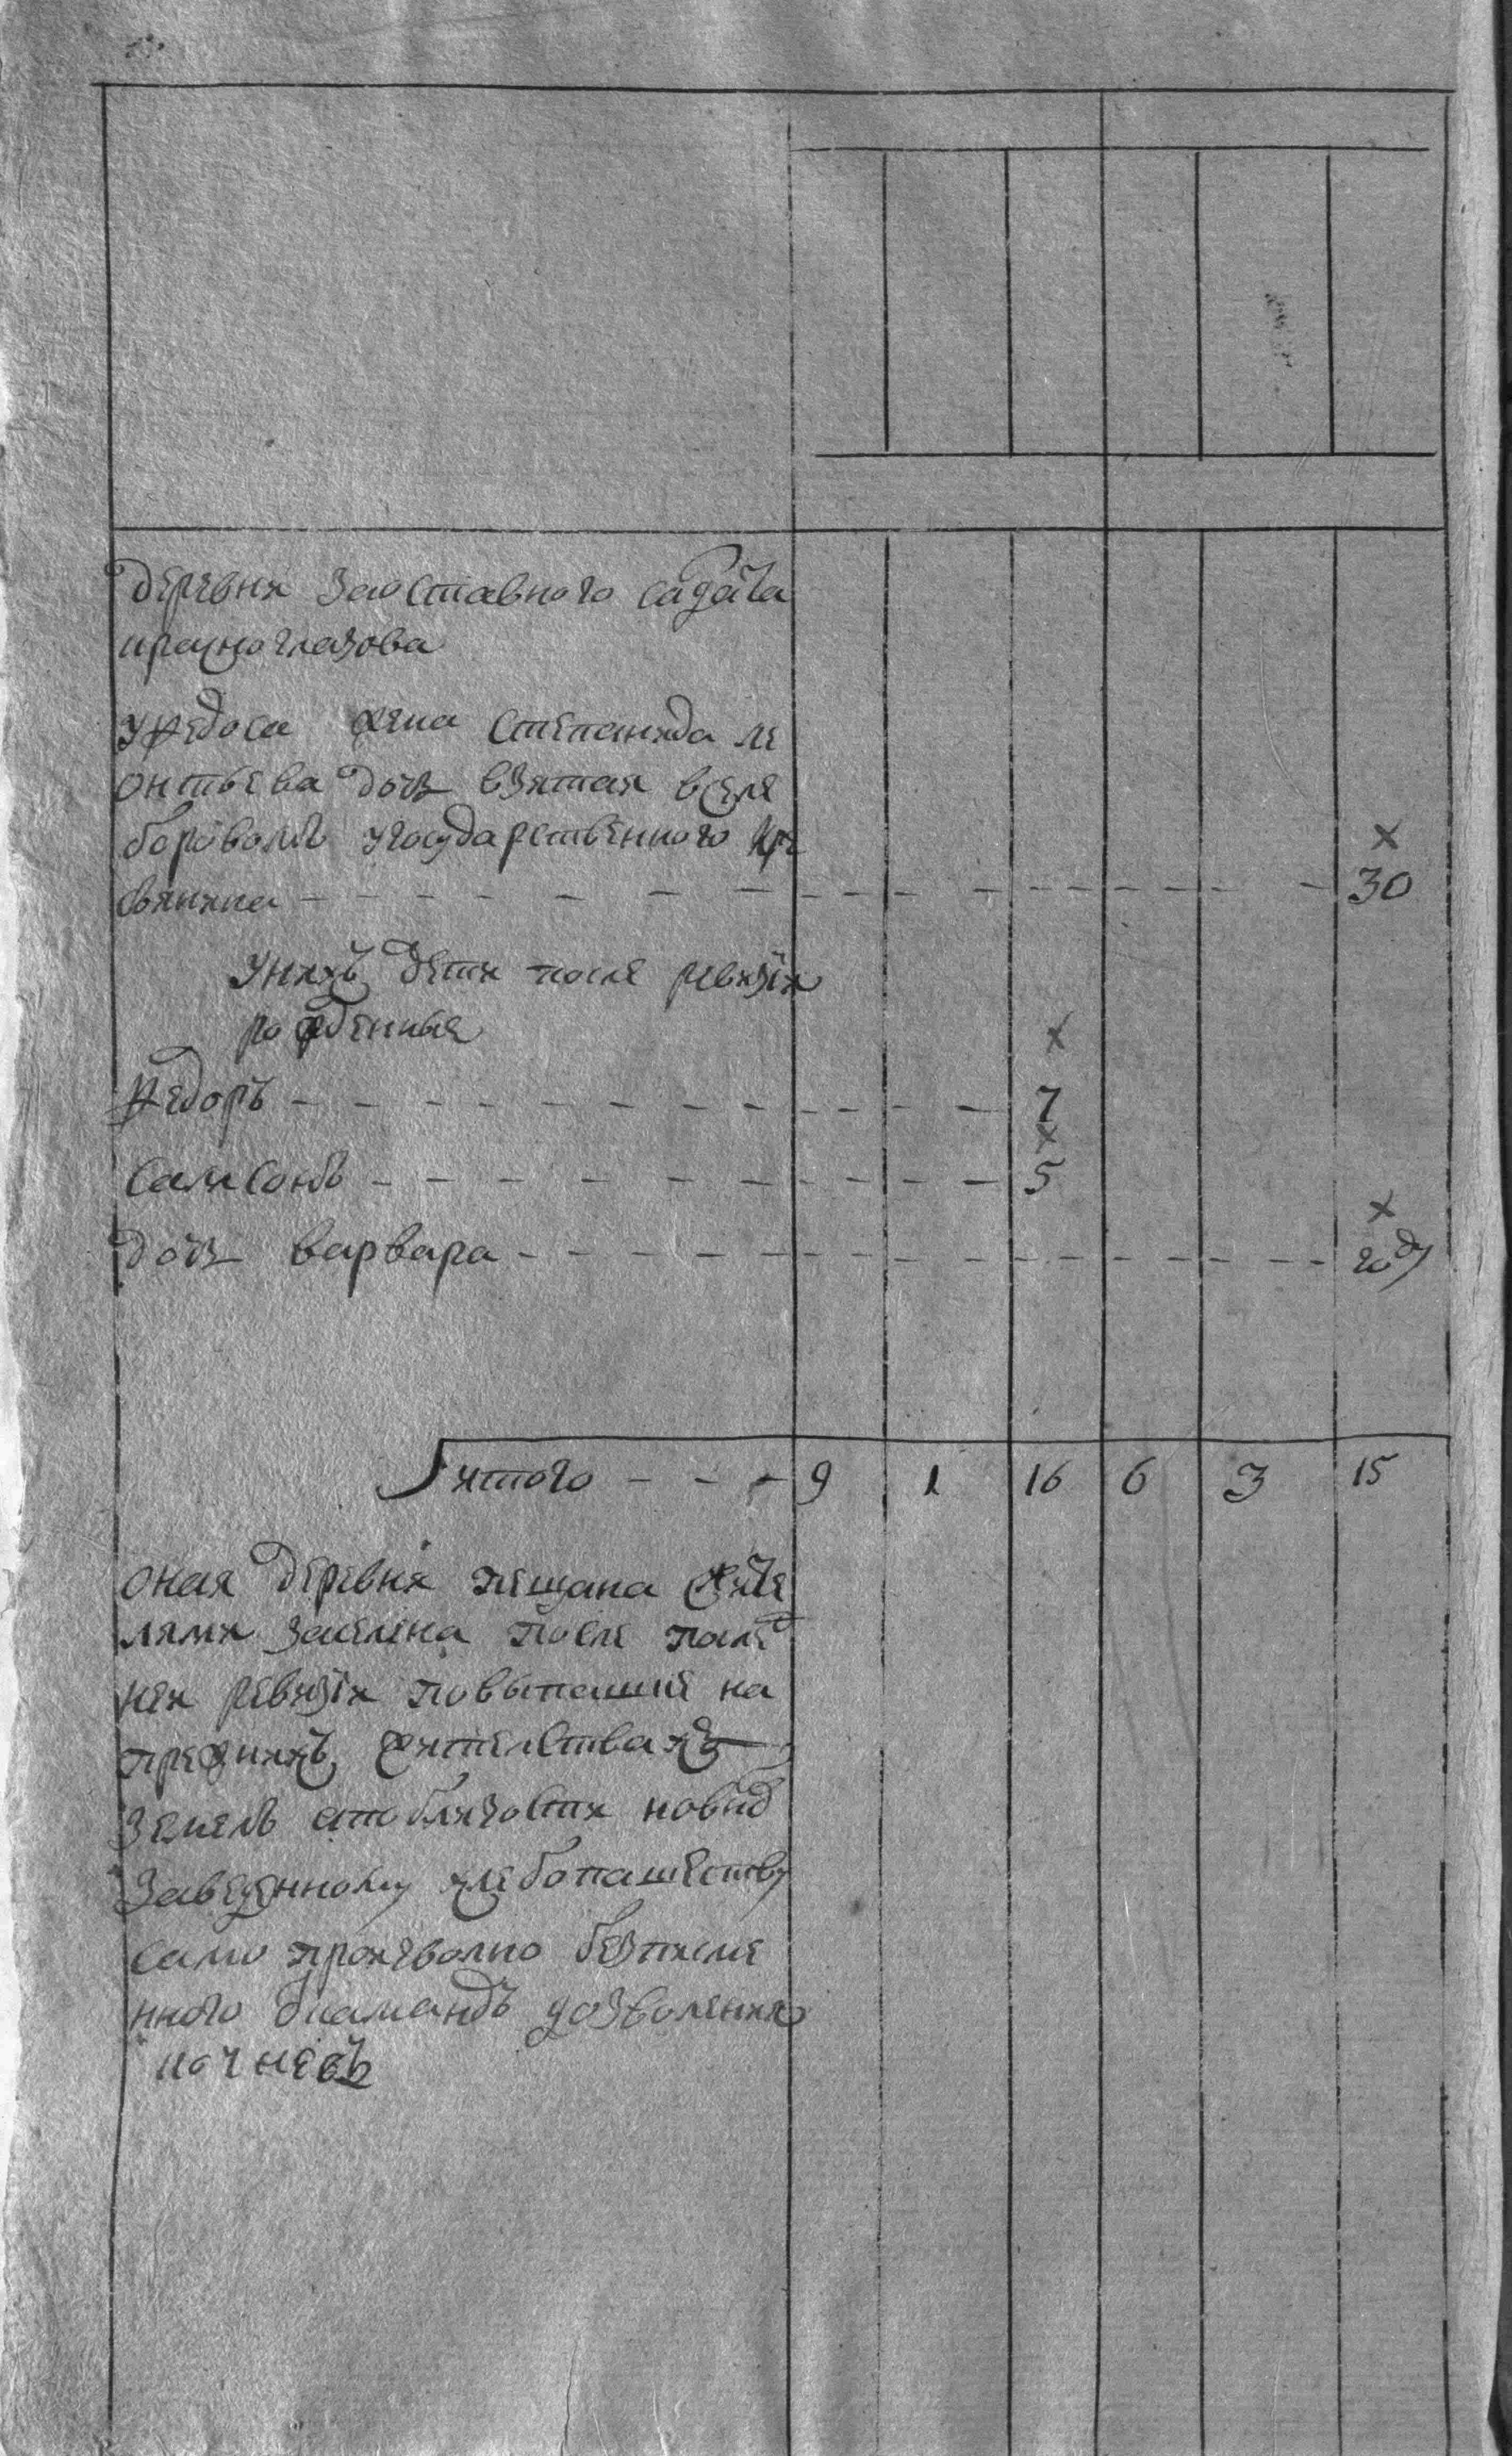 деревня заоставного садата
красноглазова
уѳедоса жена степанида ле
онтьева дочь взятая вселе
боровомъ угосударственного кре
стьянина - - - - - - - - - - - - 30
унихъ дети после ревизiи
рожденныя
ѳедоръ - - - - - - - - - - - 7
самсонъ - - - - - - - - - - 5
дочь варвара - - - - - - - - - - году
итого - - - 9 1 16 6 3 15
оная деревня пещана жите
лями заселена после послед
неи ревизiи повыпашке на
прежнихъ жительствахъ
земель
заведенному хлебопашеству
само произволно безписме
нного дозволения